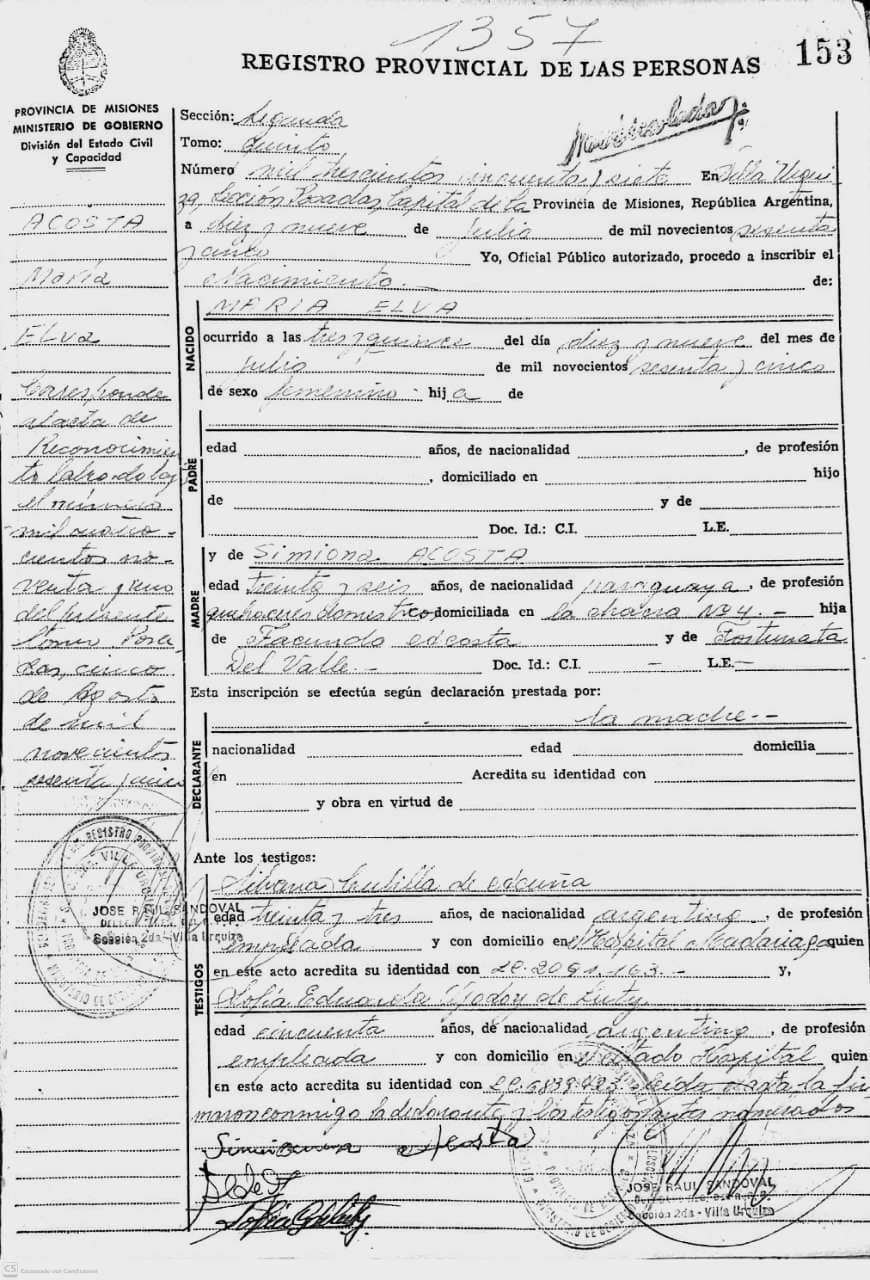 1357
153
REGISTRO PROVINCIAL DE LAS PERSONAS
PROVINCIA DE MISIONES
MINISTERIO DE GOBIERNO
División del Estado Civil
y Capacidad
ACOSTA
María
ELva
Corresponde
al acta de
Reconocimien
to labrado bajo
el número
mil cuatro-
cientos no-
venta y uno
del presente
tomo Posa
das, cinco
de Agosto
de mil
novecientos
sesenta y cinco
Sección: Segunda
Tomo: Quinto
Número mil trescientos cincuenta y siete En Villa Urqui
za, Sección Posadas, Capital de la Provincia de Misiones, República Argentina,
a diez y nueve de Julio de mil novecientos sesenta
y cinco Yo, Oficial Público autorizado, procedo a inscribir el
Nacimiento.- de:
NACIDO
MARIA ELVA
ocurrido a las tres y quince del día diez y nueve del mes de
julio de mil novecientos sesenta y cinco
de sexo femenino hija de
PADRE
edad años, de nacionalidad , de profesión
, domiciliado en hijo
de y de
Doc. Id.: C.I. L.E.
MADRE
y de Simiona ACOSTA
edad treinta y seis años, de nacionalidad paraguaya, de profesión
quehaceres domesticos domiciliada en la chacra Nº 4.- hija
de Facundo Acosta y de Fortunata
Del Valle.- Doc. Id.: C.I. — L.E.—
Esta inscripción se efectúa según declaración prestada por:
DECLARANTE
la madre.--
nacionalidad edad domicilia
en Acredita su identidad con
y obra en virtud de
Ante los testigos:
TESTIGOS
de Acuña
edad treinta y tres años, de nacionalidad argentino, de profesión
empleada y con domicilio en Hospital Madariaga quien
en este acto acredita su identidad con LC.2091.163.- y,
Sofía Eduarda Godoy de
edad cincuenta años, de nacionalidad argentino, de profesión
empleada y con domicilio en citado Hospital quien
en este acto acredita su identidad con Leida acta la fir
maron conmigo la declarante y los testigos nombrados
Acosta
JOSE RAUL SANDOVAL
Sección 2da - Villa Urquiza
JOSE RAUL SANDOVAL
Sección 2da - Villa Urquiza
CS Escaneado con CamScanner